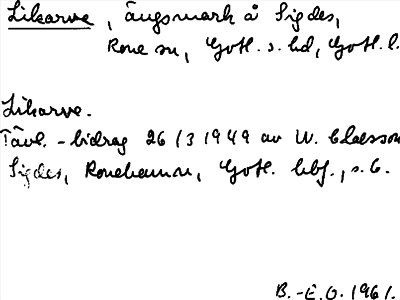 Likarve, ängsmark å Sigdes,
Rone sn, Gotl. s. hd, Gotl. l.
Likarve.
Tävl.-bidrag 26/3 1949 av W. Claesson
Sigdes, Ronehamn, Gotl. hbf., s. 6.
B.-E. O. 1961.